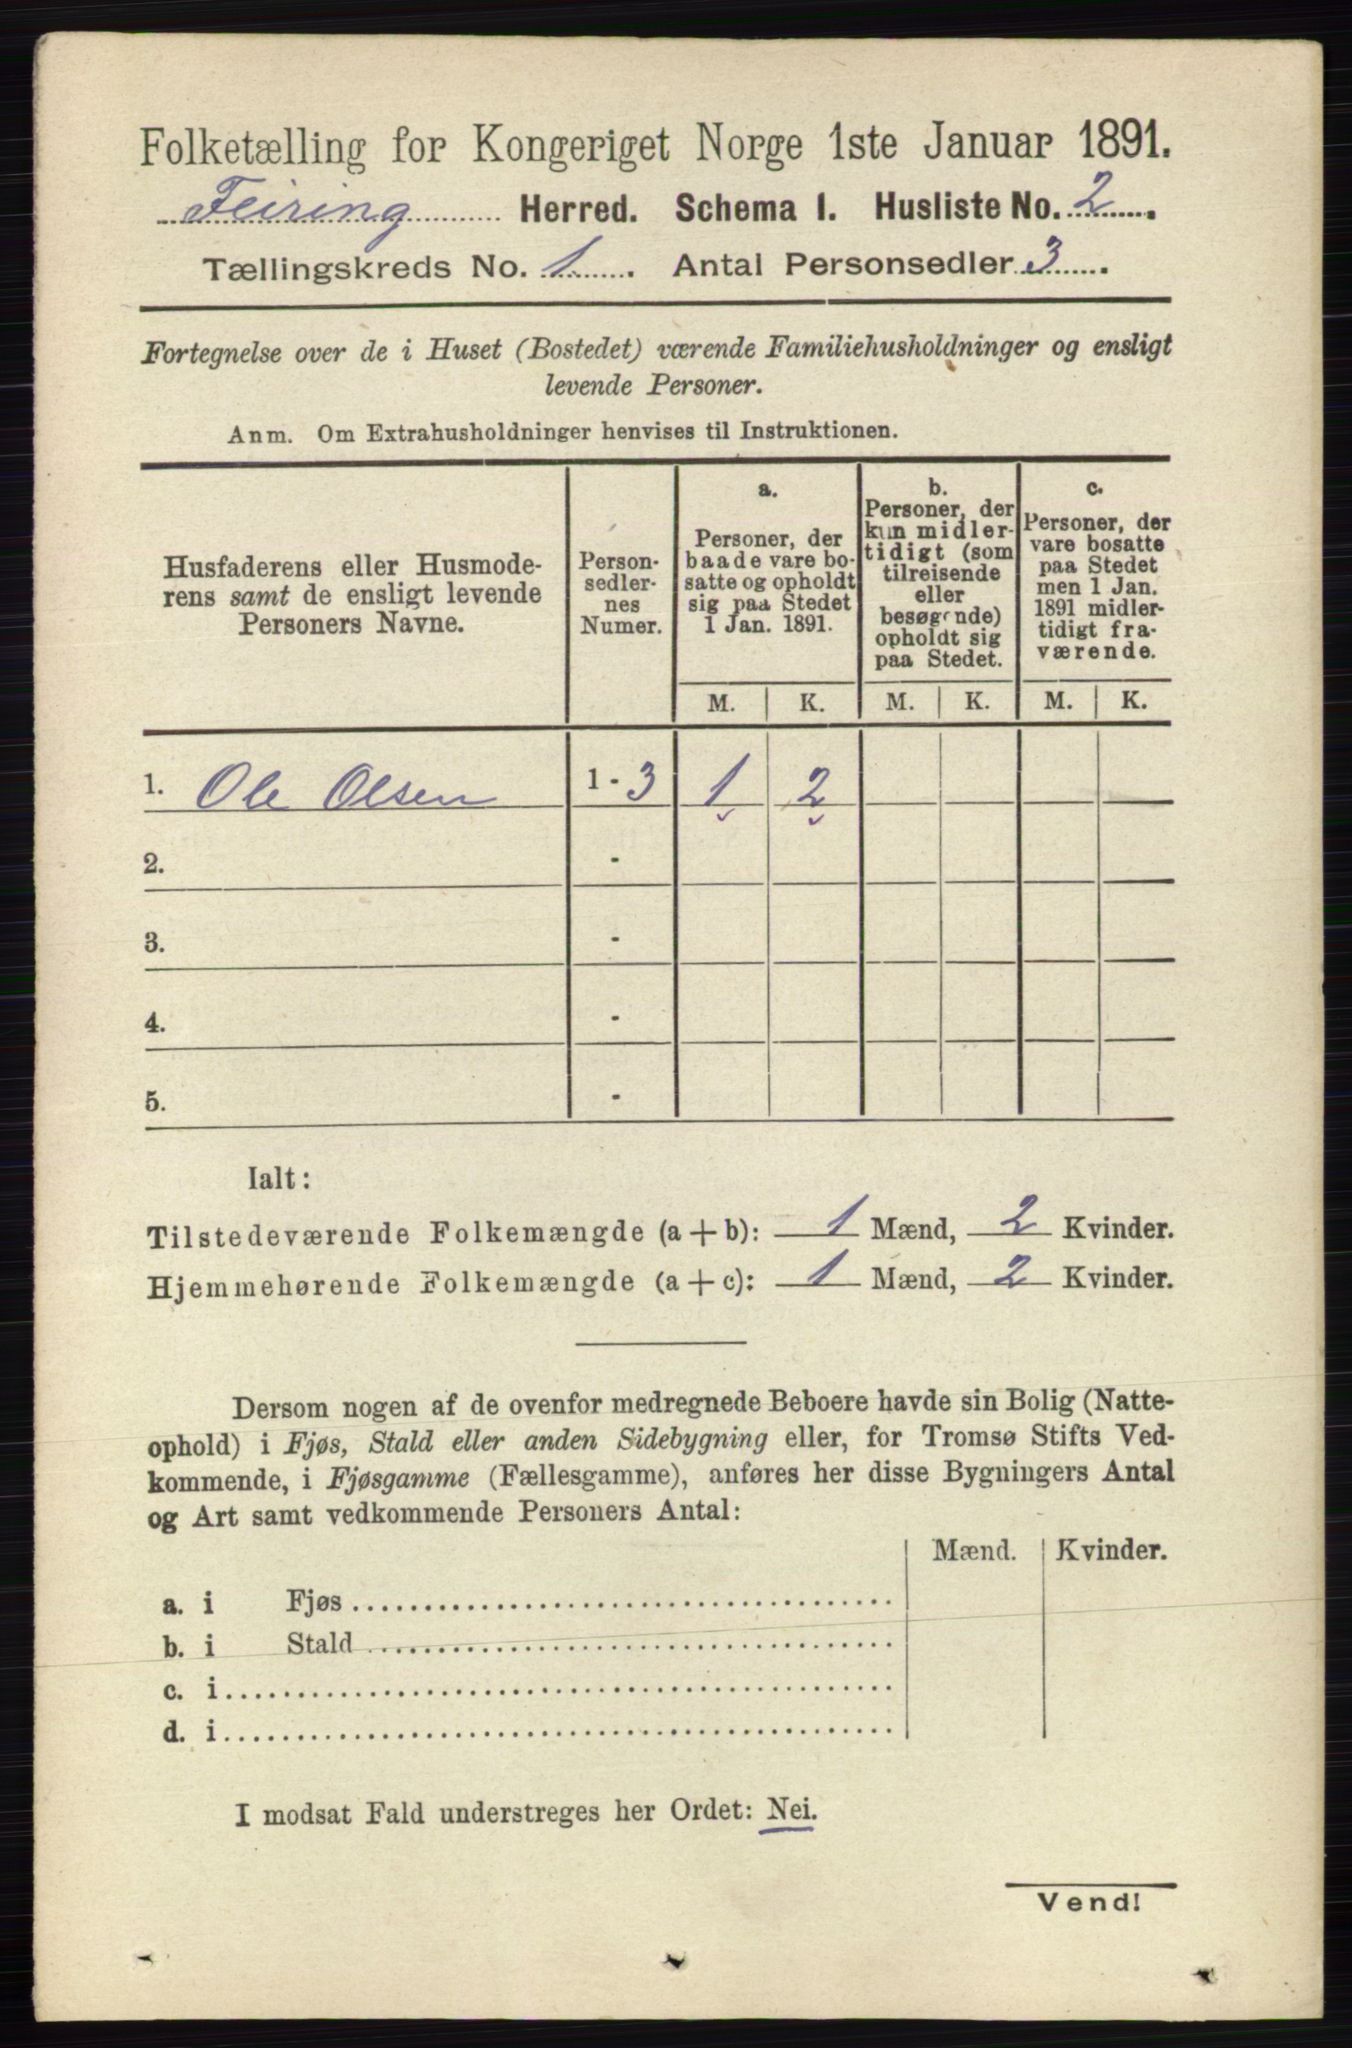 Folketælling for Kongeriget Norge 1ste Januar 1891.
Feiring Herred. Schema I. Husliste No. 2.
Tællingskreds No. 1. Antal Personsedler 3.
Fortegnelse over de i Huset (Bostedet) værende Familiehusholdninger og ensligt
levende Personer.
Anm. Om Extrahusholdninger henvises til Instruktionen.
Husfaderens eller Husmode-
rens samt de ensligt levende
Personers Navne.
Person-
sedler-
nes
Numer.
a.
Personer, der
baade vare bo-
satte og opholdt
sig paa Stedet
1 Jan. 1891.
b.
Personer, der
kun midler-
tidigt (som
tilreisende
eller
besøgende)
opholdt sig
paa Stedet.
c.
Personer, der
vare bosatte
paa Stedet
men 1 Jan.
1891 midler-
tidigt fra-
værende.
M. K. M. K. M. K.
1. Ole Olsen 1 - 3 1 2
2. -
3. -
4. -
5. -
Ialt:
Tilstedeværende Folkemængde (a + b): 1 Mænd, 2 Kvinder.
Hjemmehørende Folkemængde (a + c): 1 Mænd, 2 Kvinder.
Dersom nogen af de ovenfor medregnede Beboere havde sin Bolig (Natte-
ophold) i Fjøs, Stald eller anden Sidebygning eller, for Tromsø Stifts Ved-
kommende, i Fjøsgamme (Fællesgamme), anføres her disse Bygningers Antal
og Art samt vedkommende Personers Antal:
Mænd. Kvinder.
a. i Fjøs
b. i Stald
c. i
d. i
I modsat Fald understreges her Ordet: Nei.
Vend!